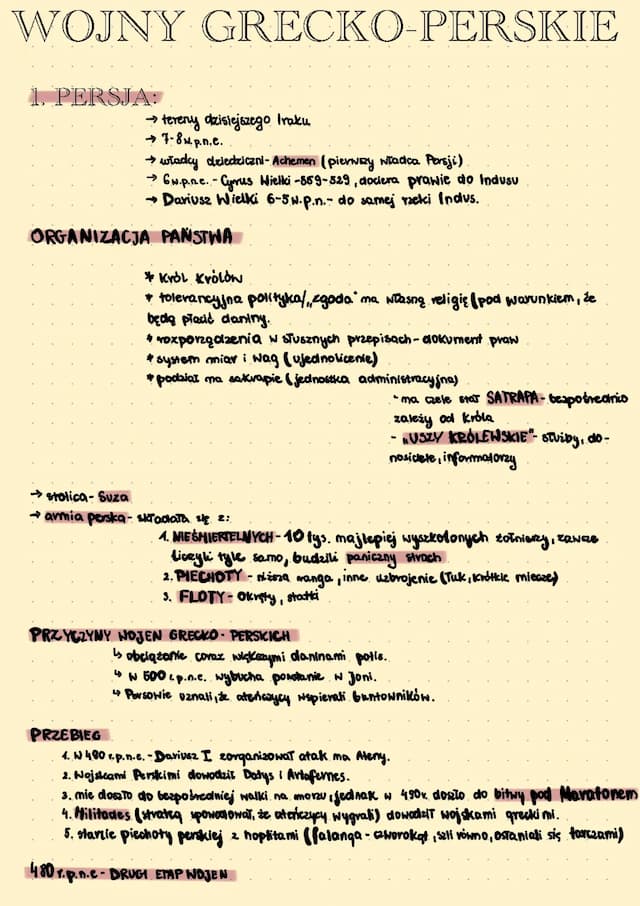 WOJNY GRECKO-PERSKIE
1. PERSJA:
→ tereny dzisiejszego Iraku
→ 7-8 w.p.n.e.
→ władcy dziedziczni- Achemen (pierwszy władca Persji)
→ 6 w.p.n.e. - Cyrus Wielki -559-529, dociera prawie do Indusu
→ Dariusz Wielki 6-5 w.p.n.- do samej rzeki Indus.
ORGANIZACJA PAŃSTWA
* Król Królów
* tolerancyjna polityka/„zgoda" na własną religię (pod warunkiem, że
będą płacić daniny.
* rozporządzenia w słusznych przepisach- dokument praw
* system miar i wag (ujednolicenie)
* podział na satrapie (jednostka administracyjna)
- na czele stał SATRAPA- bezpośrednio
zależy od króla
- „USZY KRÓLEWSKIE"- służby, do-
nosiciele, informatorzy
→ stolica- Suza
→ armia perska- składała się z:
1. NIEŚMIERTELNYCH- 10 tys. najlepiej wyszkolonych żołnierzy, zawsze
liczyli tyle samo, budzili paniczny strach
2. PIECHOTY - niższa ranga, inne uzbrojenie (łuk, krótkie miecze)
3. FLOTY- okręty, statki
PRZYCZYNY WOJEN GRECKO-PERSKICH
↳ obciążanie coraz większymi daninami polis.
↳ w 500 r.p.n.e. wybucha powstanie w Joni.
↳ Persowie uznali, że ateńczycy wspierali buntowników.
PRZEBIEG
1. W 490 r.p.n.e. - Dariusz I zorganizował atak na Ateny.
2. Wojskami Perskimi dowodzili Datys i Artafernes.
3. nie doszło do bezpośredniej walki na morzu, jednak w 490r. doszło do bitwy pod Maratonem
4. Militades (strateg spowodował, że ateńczycy wygrali) dowodził wojskami greckimi.
5. starcie piechoty perskiej z hoplitami (falanga - czworokąt, szli równo, osłaniali się tarczami)
480 r.p.n.e - DRUGI ETAP WOJEN